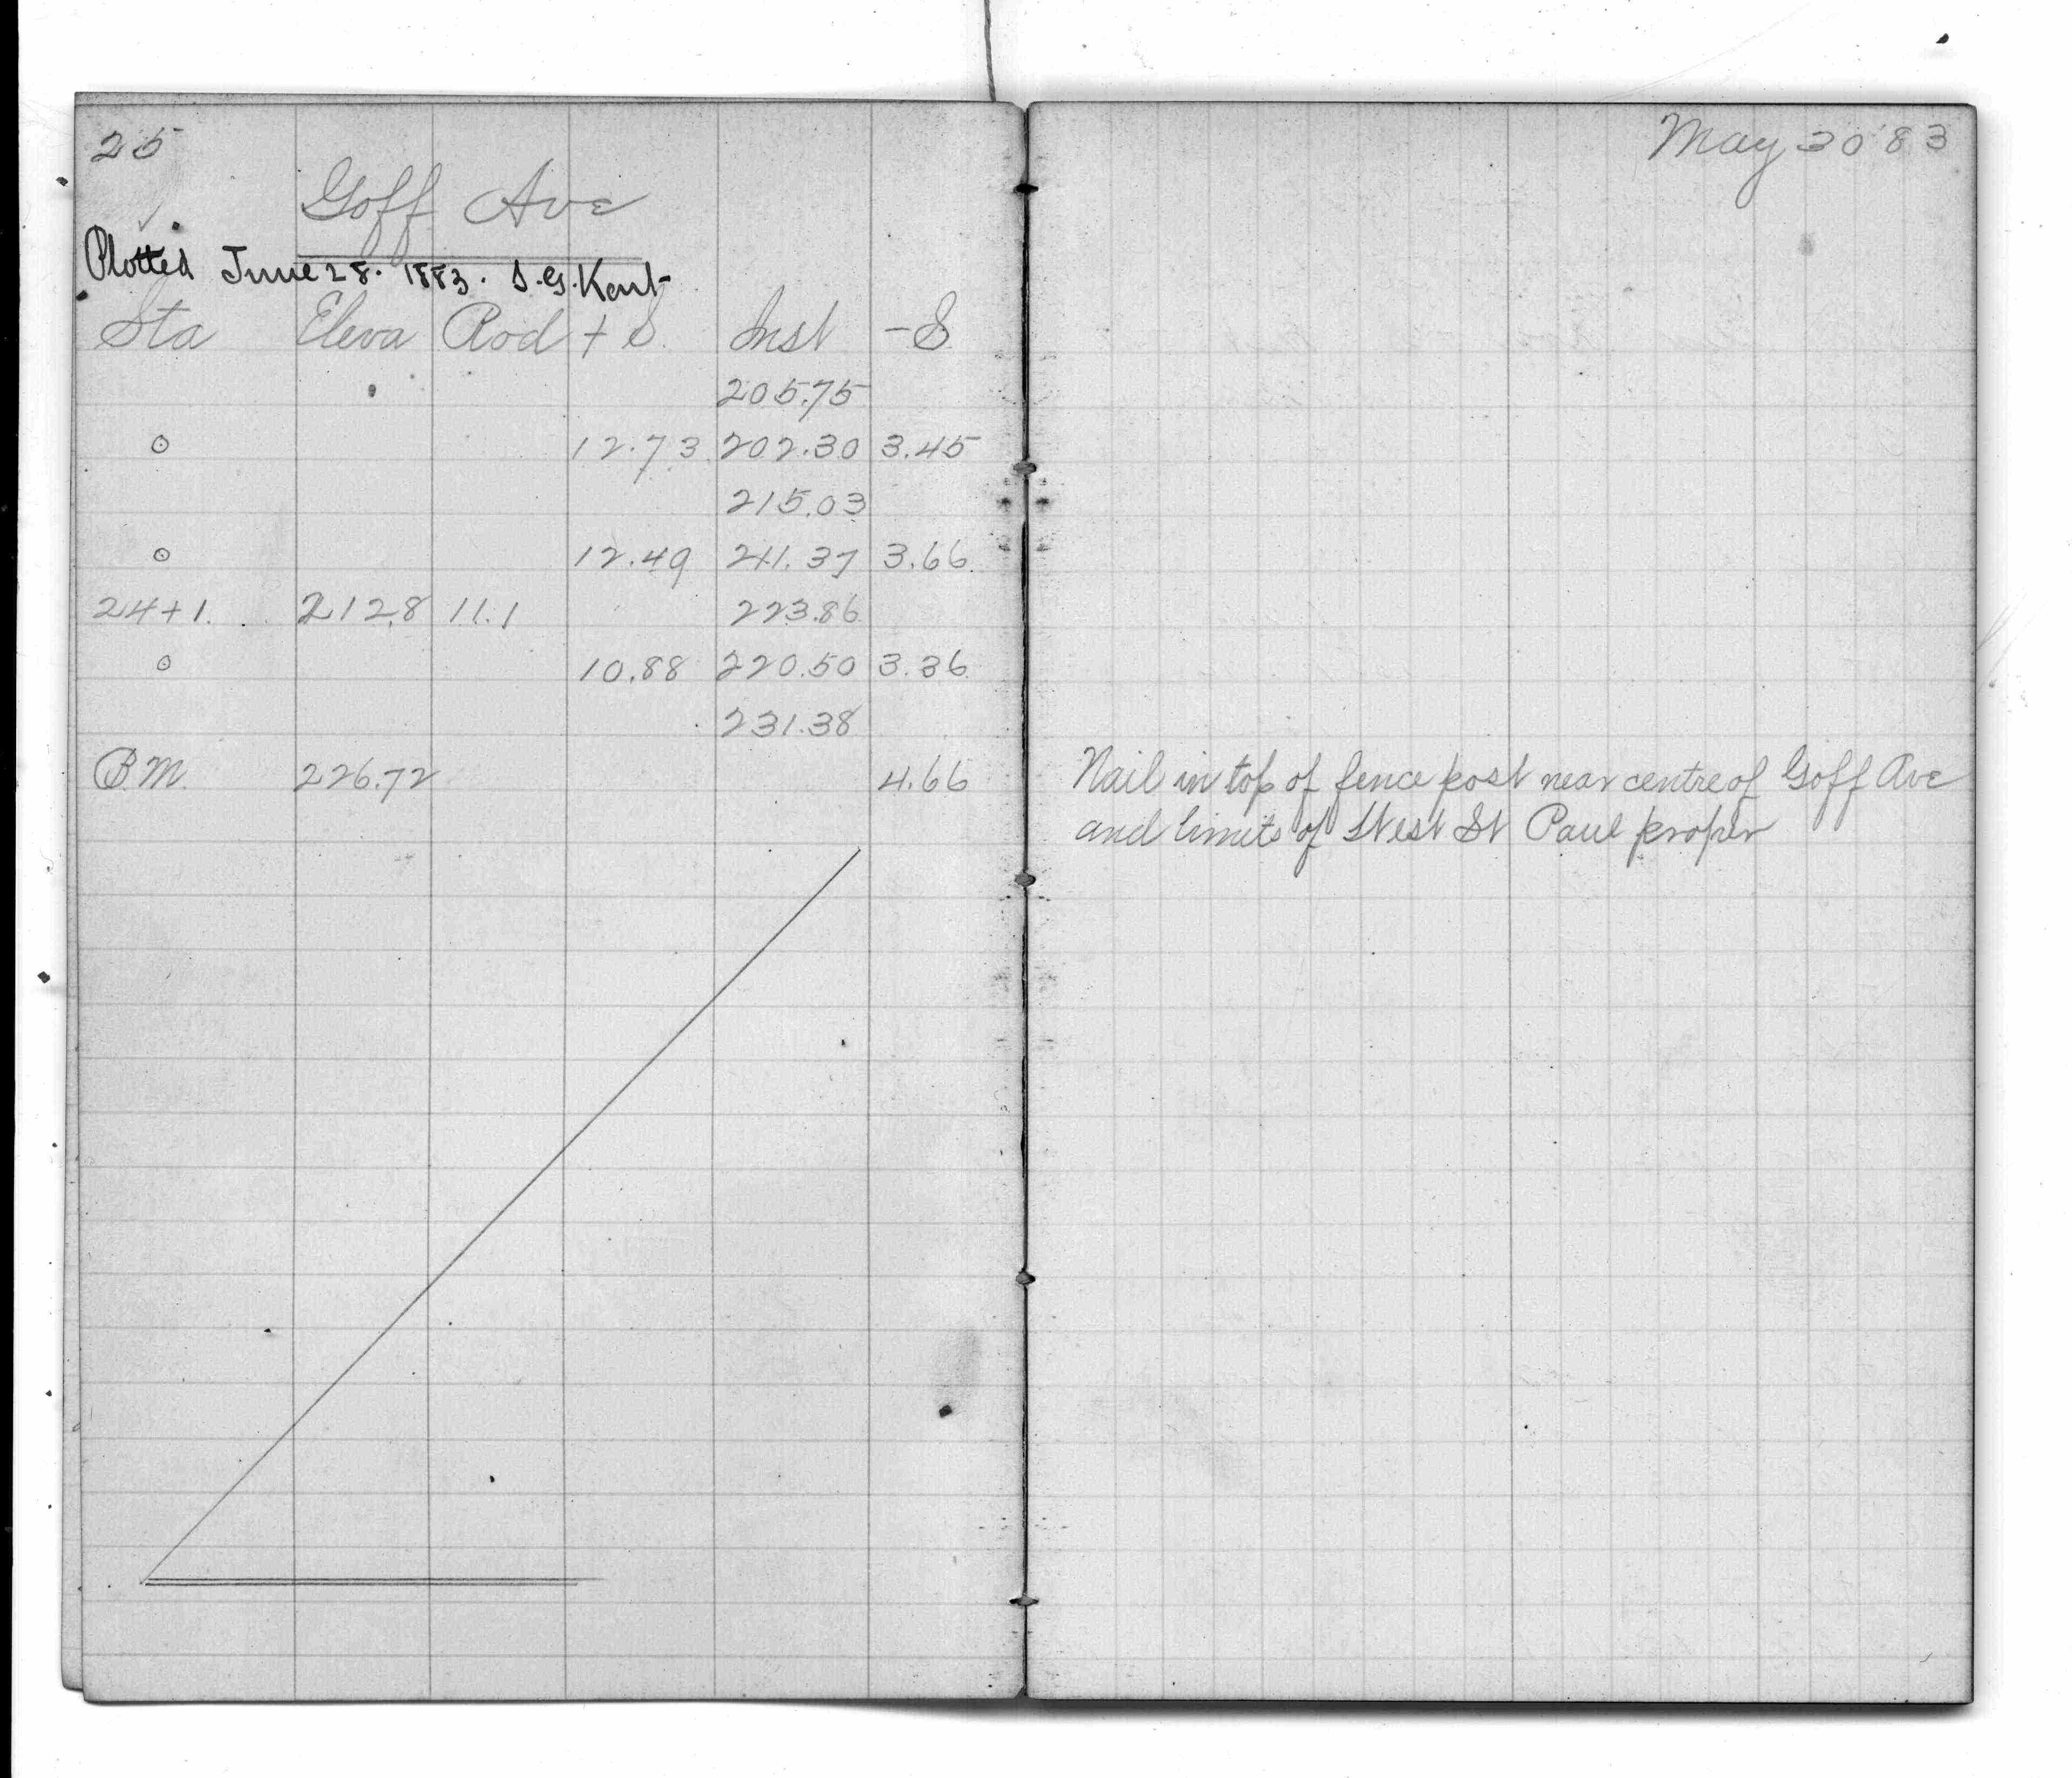 25
May 30 '83
Goff Ave
Plotted June 28. 1883. S.G. Kent
Sta Eleva Rod + S. Inst - S
205.75
o 12.73 202.30 3.45
215.03
o 12.49 211.37 3.66
24+1. 212.8 11.1 223.86
o 10.88 220.50 3.36
231.38
B.M. 226.72 4.66 Nail in top of fence post near centre of Goff Ave
and limits of West St Paul proper